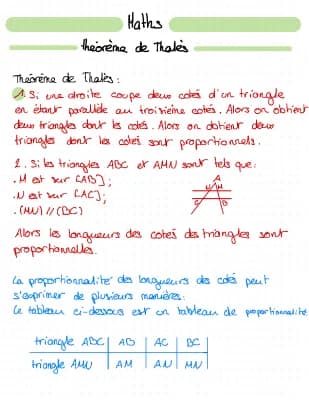 Maths
théorème de Thalès
Théorème de Thalès :
1. Si une droite coupe deux cotés d'un triangle
en étant parallèle au troisième cotés. Alors on obtient
deux triangles dont les cotés. Alors on obtient deux
triangles dont les cotés sont proportionnels.
2. Si les triangles ABC et AMN sont tels que:
. M est sur [AB];
. N est sur [AC];
. (MN) // (BC)
A
M
C
B
Alors les longueurs des cotés des triangles sont
proportionnelles.
La proportionnalité des longueurs des cotés peut
s'exprimer de plusieurs manières:
Le tableau ci-dessous est un tableau de proportionnalité
triangle ABC AB AC BC
triangle AMN AM AN MN